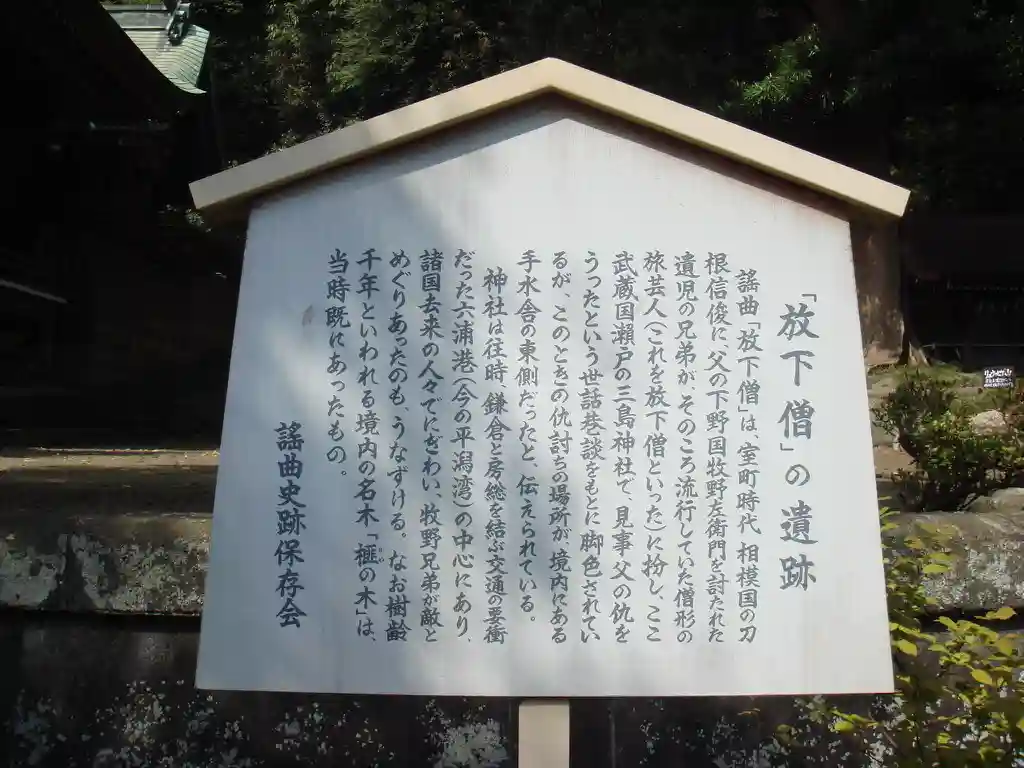 「放下僧」の遺跡
謡曲「放下僧」は、室町時代、相模国の刀
根信俊に、父の下野国牧野左衛門を討たれた
遺児の兄弟が、そのころ流行していた僧形の
旅芸人(これを放下僧といった)に扮し、ここ
武蔵国瀬戸の三島神社で、見事父の仇を
うったという世話巷談をもとに脚色されてい
るが、このときの仇討ちの場所が、境内にある
手水舎の東側だったと、伝えられている。
神社は往時、鎌倉と房総を結ぶ交通の要衝
だった六浦港(今の平潟湾)の中心にあり、
諸国去来の人々でにぎわい、牧野兄弟が敵と
めぐりあったのも、うなずける。なお樹齢
千年といわれる境内の名木「榧の木」は、
当時既にあったもの。
謡曲史跡保存会